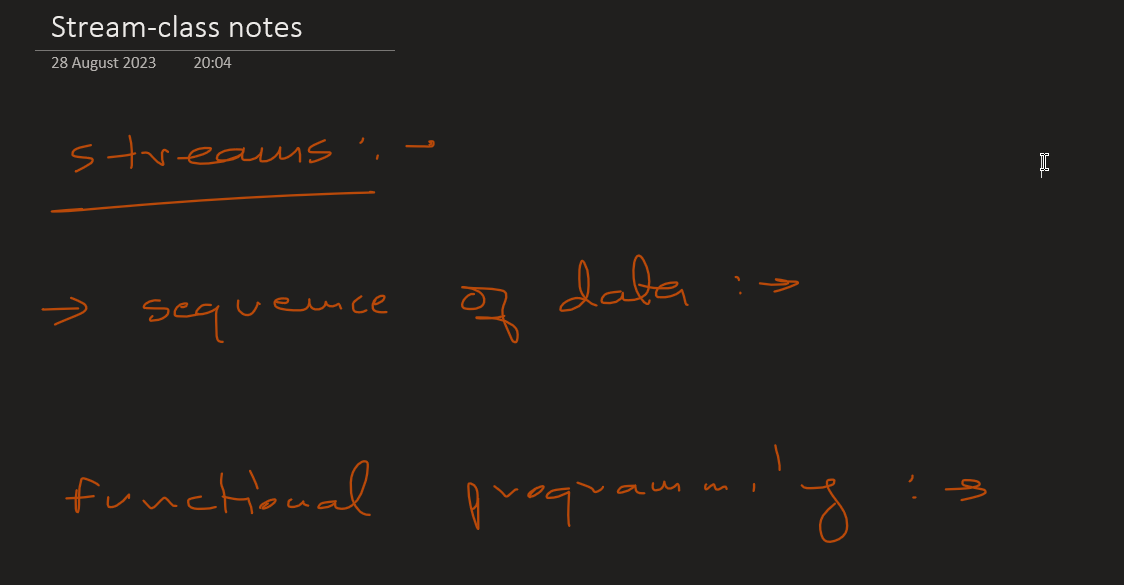 Stream-class notes
28 August 2023 20:04
streams :→
→ sequence of data :→
functional programming :→